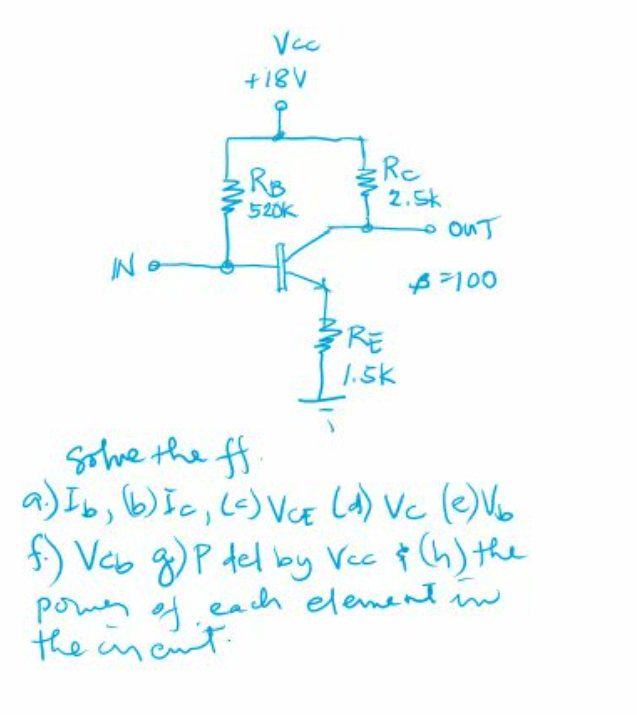 Vcc
+18V
RB
520K
Rc
2.5k
OUT
IN
β=100
RE
1.5K
Solve the ff.
a.) Ib, (b) Ic, (c) VCE (d) Vc (e) Vb
f.) Vcb g) P del by Vcc & (h) the
power of each element in
the circuit.